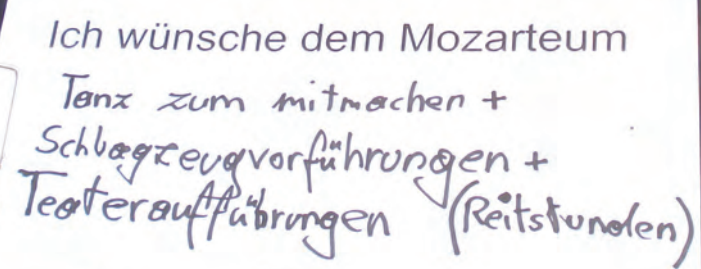 Ich wünsche dem Mozarteum
Tanz zum mitmachen +
Schlagzeugvorführungen +
Teateraufführungen (Reitstunden)